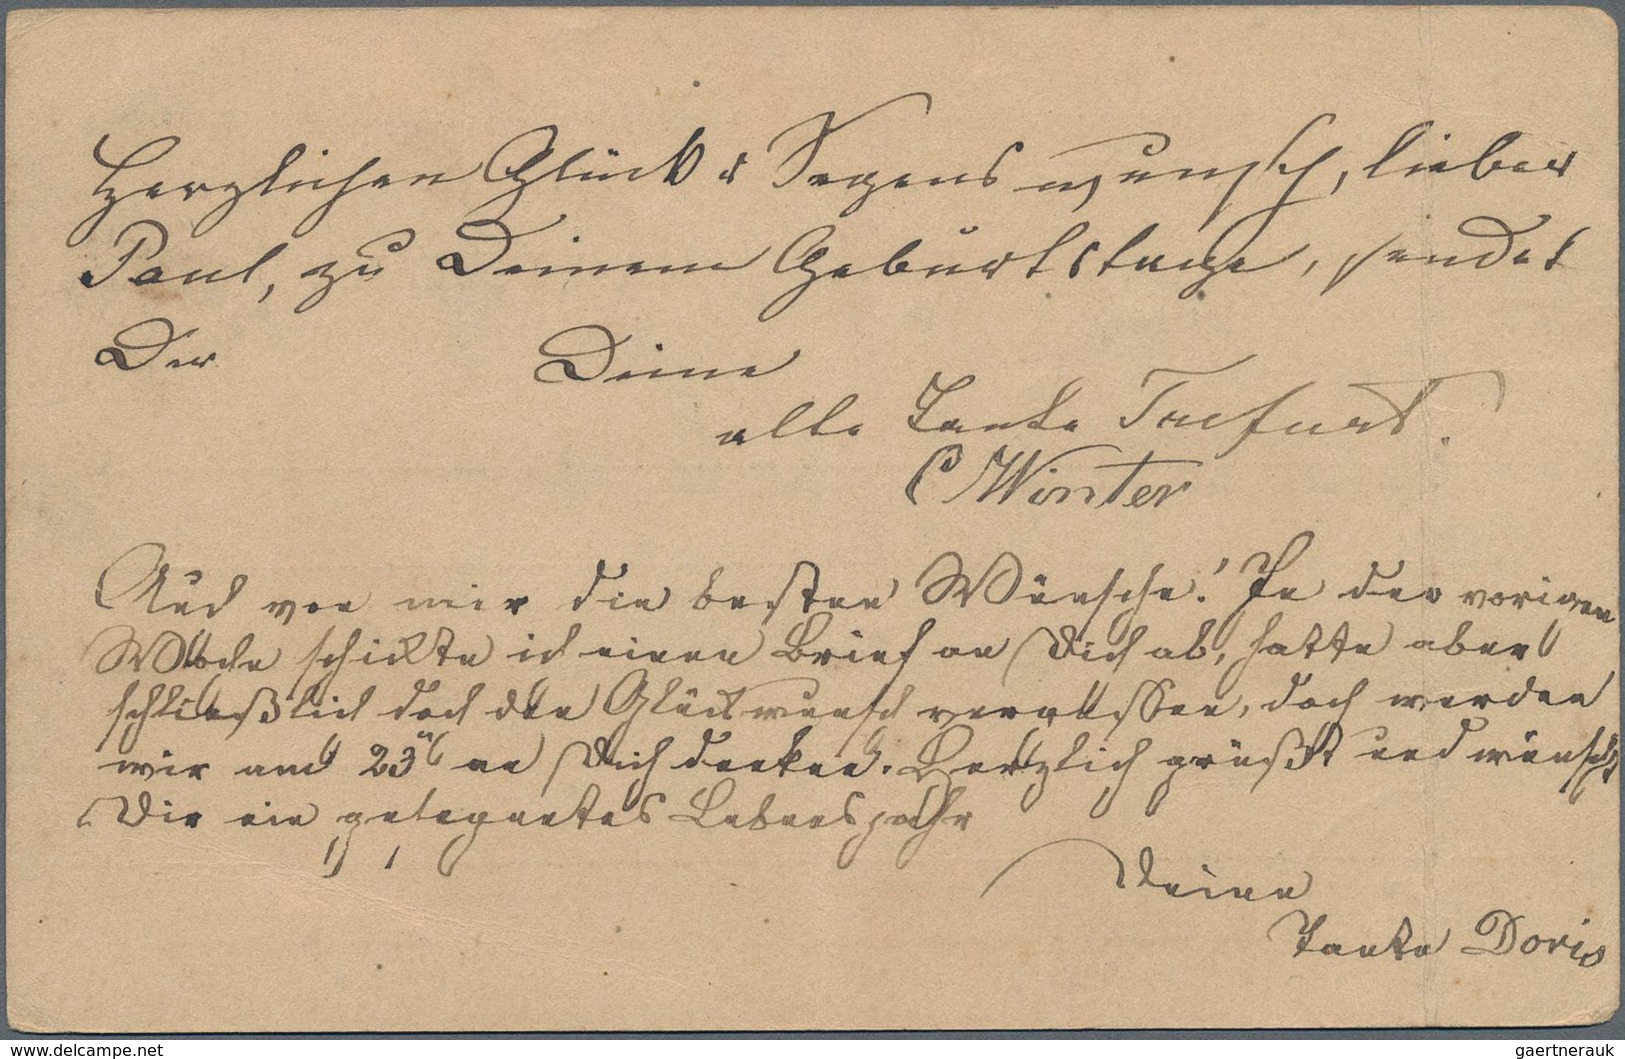 Herzlichen Glück u Segenswunsch, lieber
Paul, zu Deinem Geburtstage, sendet
Dir Deine
alte Tante
C Winter
Auch von mir die besten Wünsche! In der vorigen
Woche schickte ich einen Brief an Dich ab, hatte aber
schließlich doch den Glückwunsch vergessen, doch werden
wir am 23n an Dich denken. Herzlich grüßt und wünscht
Dir ein gesegnetes Lebensjahr
Deine
Tante Doris
www.delcampe.net
gaertnerauk